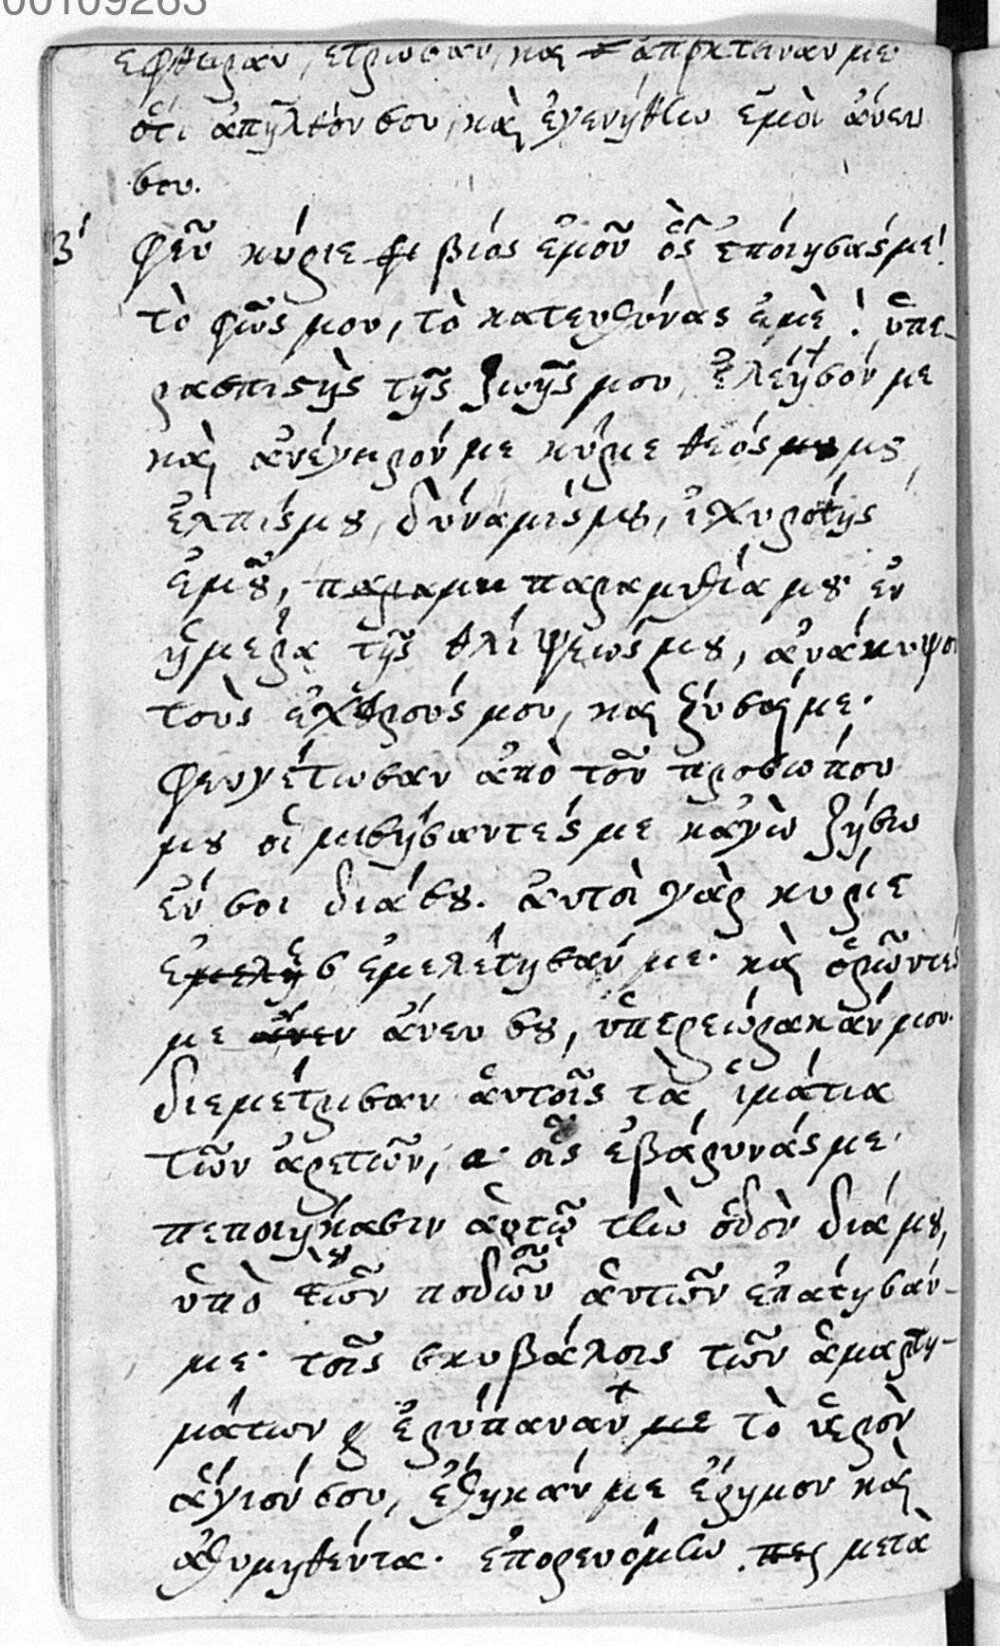 00109263
ἔφθειραν, ἔτρωσαν, καὶ ἀπρκτειναν με·
ὅτι ἀπῆλθόν σου, καὶ ἐγενήθην ἐμὸι ἄνευ
σου.
β΄ φεῦ κύριε βιός ἐμοῦ ὃς ἐποιησάς με!
τὸ φῶς μου, τὸ κατευθύνας ἐμὲ! ὕπε-
ρασπιστὴς τῆς ζωῆς μου, ἐλέησόν με
καὶ ἀνέγειρόν με κύριε θεός μȣ
ἐλπίς μȣ, δύναμίς μȣ, ἰχυρότης
ἐμȣ͂, παραμυθία μȣ· ἐν
ἡμέρα τῆς θλίψεώς μȣ, ἀνάκυψον
τοὺς ἐχθρούς μου, καὶ ζῦσαί με·
φευγέτωσαν ἀπὸ τοῦ προσώπου
μȣ οἱ μισήσαντές με κἀγὼ ζήσω
ἐν σοι διά σȣ. ἀυτοὶ γὰρ κυρίε
ἐμελέτησαν με· καὶ ὁρῶντές
με ἄνευ σȣ, ὑπερεώρακάν μου·
διεμέτρισαν ἁυτοῖς τὰ ἱμάτια
τῶν ἀρετῶν, οἷς ἐβάρυνάς με·
πεποιήκασιν ἀυτῶ τὴν ὁδὸν διά μȣ,
ὑπὸ τῶν ποδῶν ἀυτῶν ἐπάτησάν-
με· τοῖς σκυβάλοις τῶν ἁμαρτη-
μάτων ἐρύπαναν με τὸ ἱερὸν
ἅγιόν σου, ἔθηκάν με ἔρημον καὶ
ἀθυμηθέντα· ἐπορευόμην μετὰ